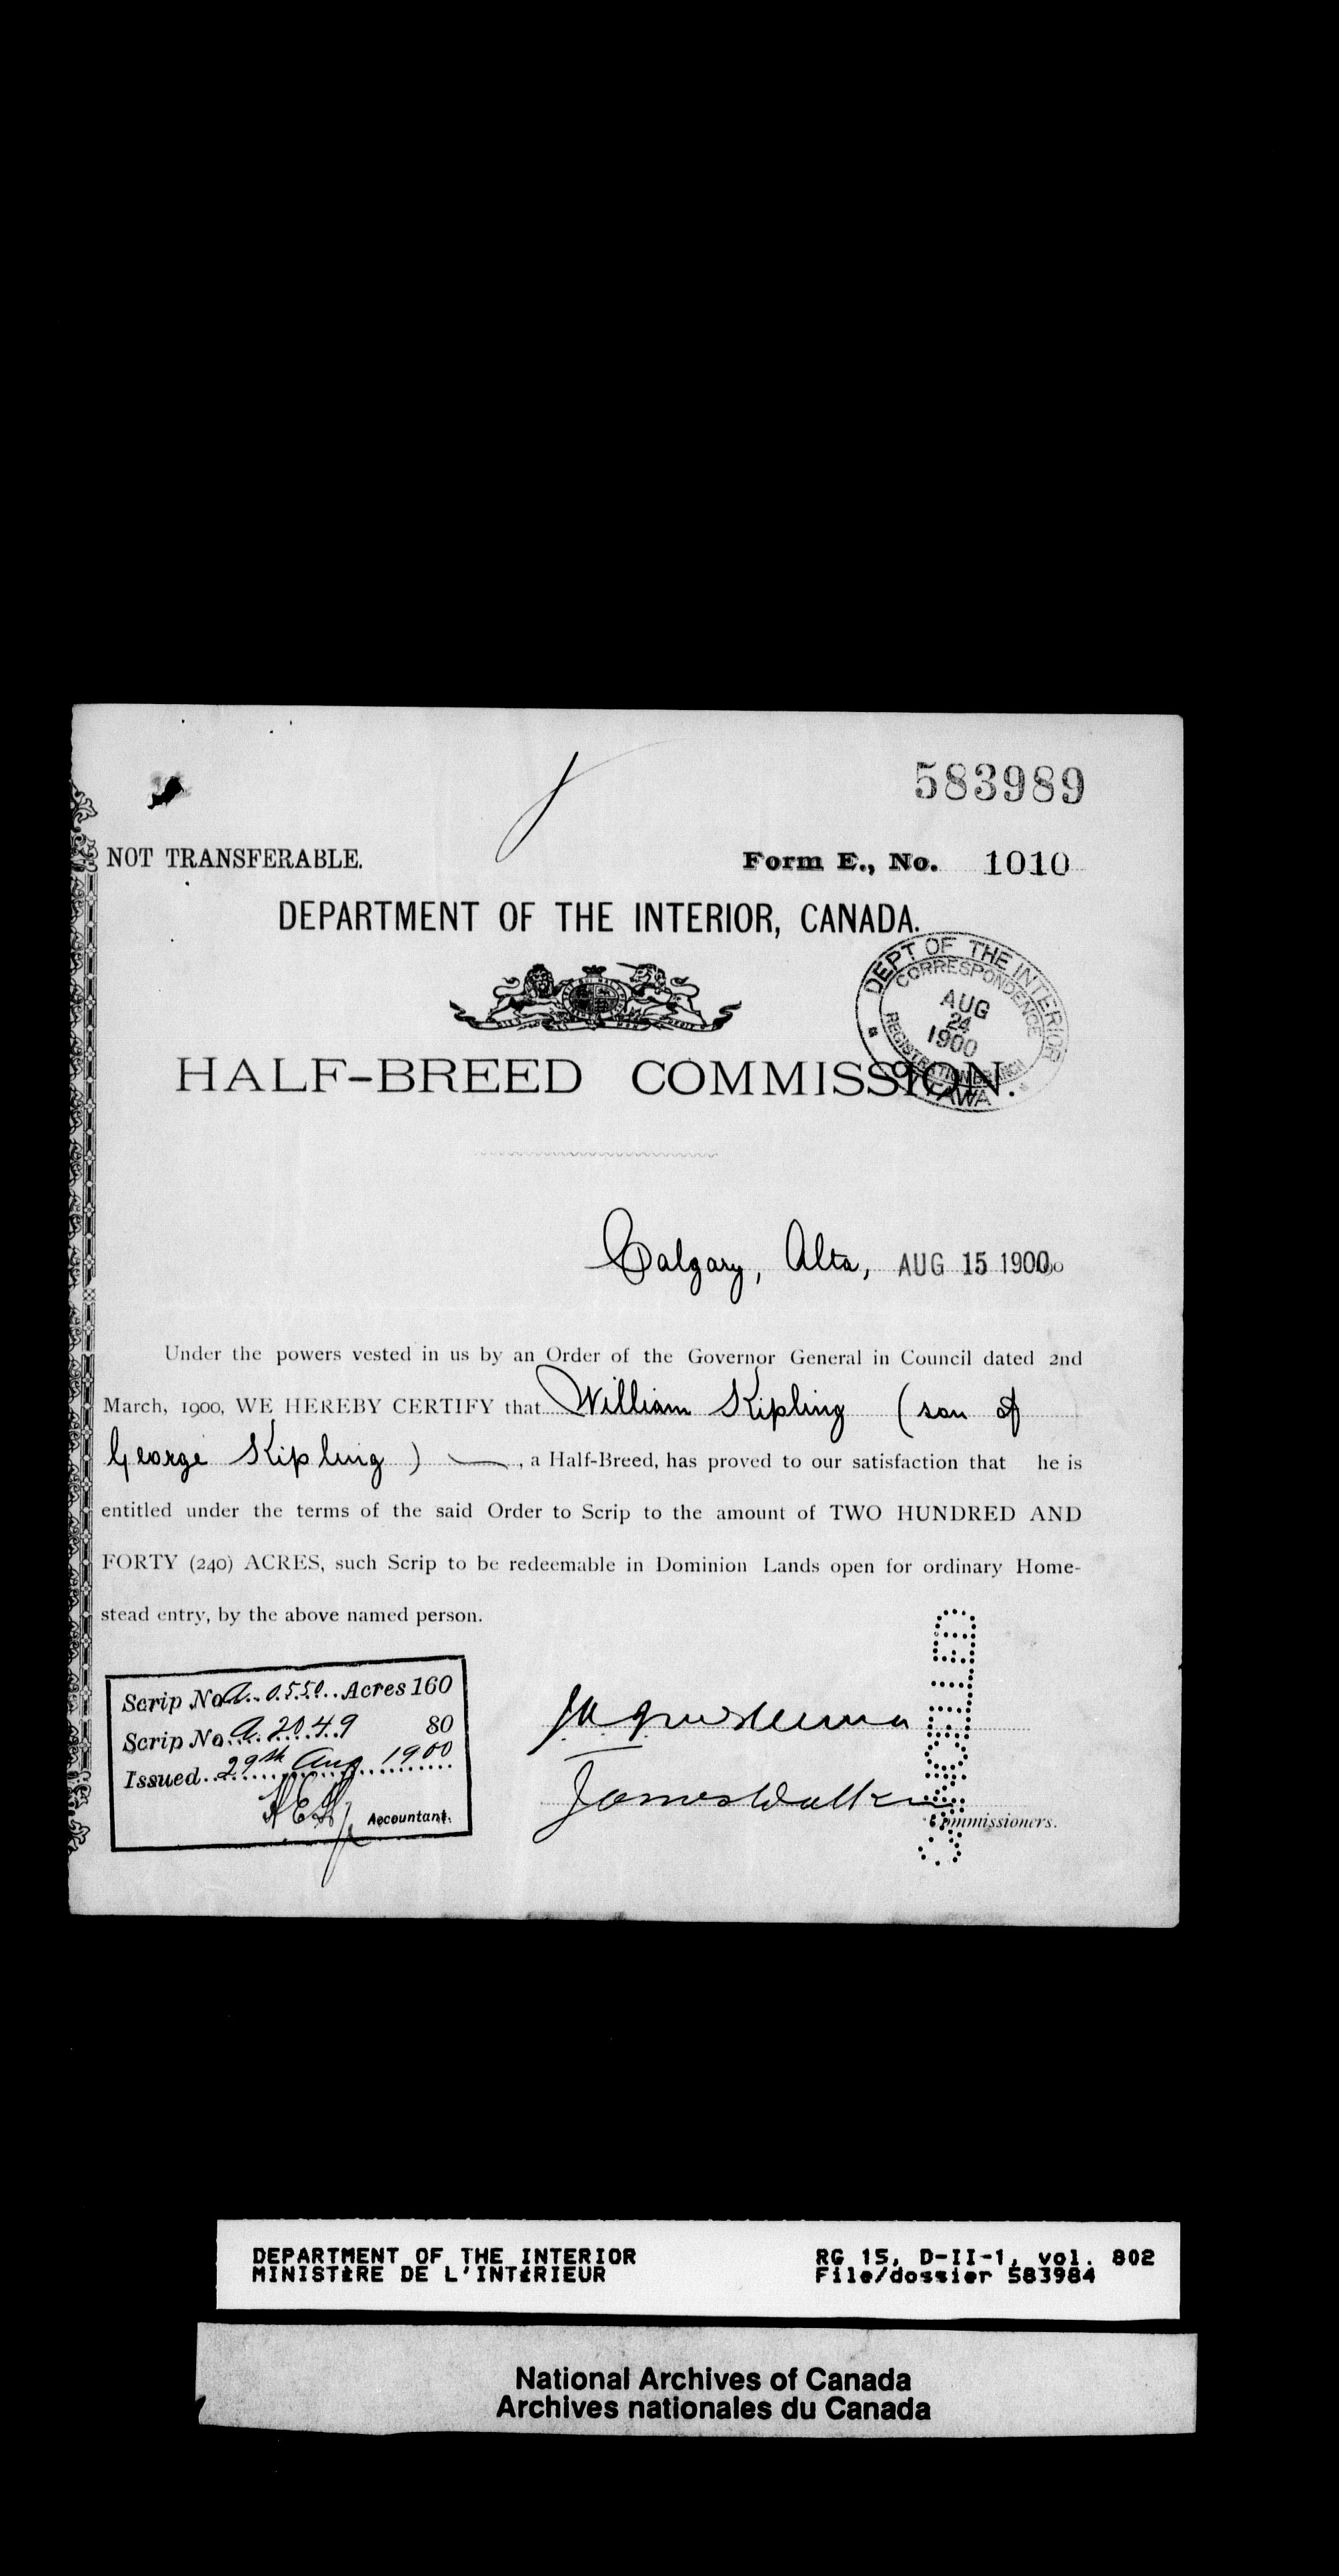 583989
NOT TRANSFERABLE.
Form E., No. 1010
DEPARTMENT OF THE INTERIOR, CANADA.
DEPT OF THE INTERIOR
CORRESPONDENCE
AUG
24
1900
REGISTRATION BRANCH
OTTAWA
HALF-BREED COMMISSION.
Calgary, Alta, AUG 15 1900
Under the powers vested in us by an Order of the Governor General in Council dated 2nd
March, 1900, WE HEREBY CERTIFY that William Kipling (son of
George Kipling) —, a Half-Breed, has proved to our satisfaction that he is
entitled under the terms of the said Order to Scrip to the amount of TWO HUNDRED AND
FORTY (240) ACRES, such Scrip to be redeemable in Dominion Lands open for ordinary Home-
stead entry, by the above named person.
Scrip No. A. 0550 Acres 160
Scrip No. A. 2049 80
Issued 29th Aug 1900
Accountant.
James Walker
Commissioners.
CANCELLED
DEPARTMENT OF THE INTERIOR
MINISTÈRE DE L'INTÉRIEUR
RG 15, D-II-1, vol. 802
File/dossier 583984
National Archives of Canada
Archives nationales du Canada